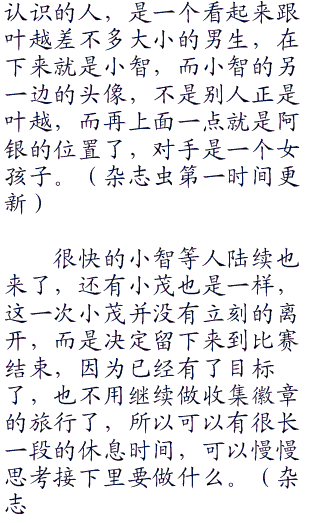 认识的人，是一个看起来跟
叶越差不多大小的男生，在
下来就是小智，而小智的另
一边的头像，不是别人正是
叶越，而再上面一点就是阿
银的位置了，对手是一个女
孩子。（杂志虫第一时间更
新）
很快的小智等人陆续也
来了，还有小茂也是一样，
这一次小茂并没有立刻的离
开，而是决定留下来到比赛
结束，因为已经有了目标
了，也不用继续做收集徽章
的旅行了，所以可以有很长
一段的休息时间，可以慢慢
思考接下里要做什么。（杂
志